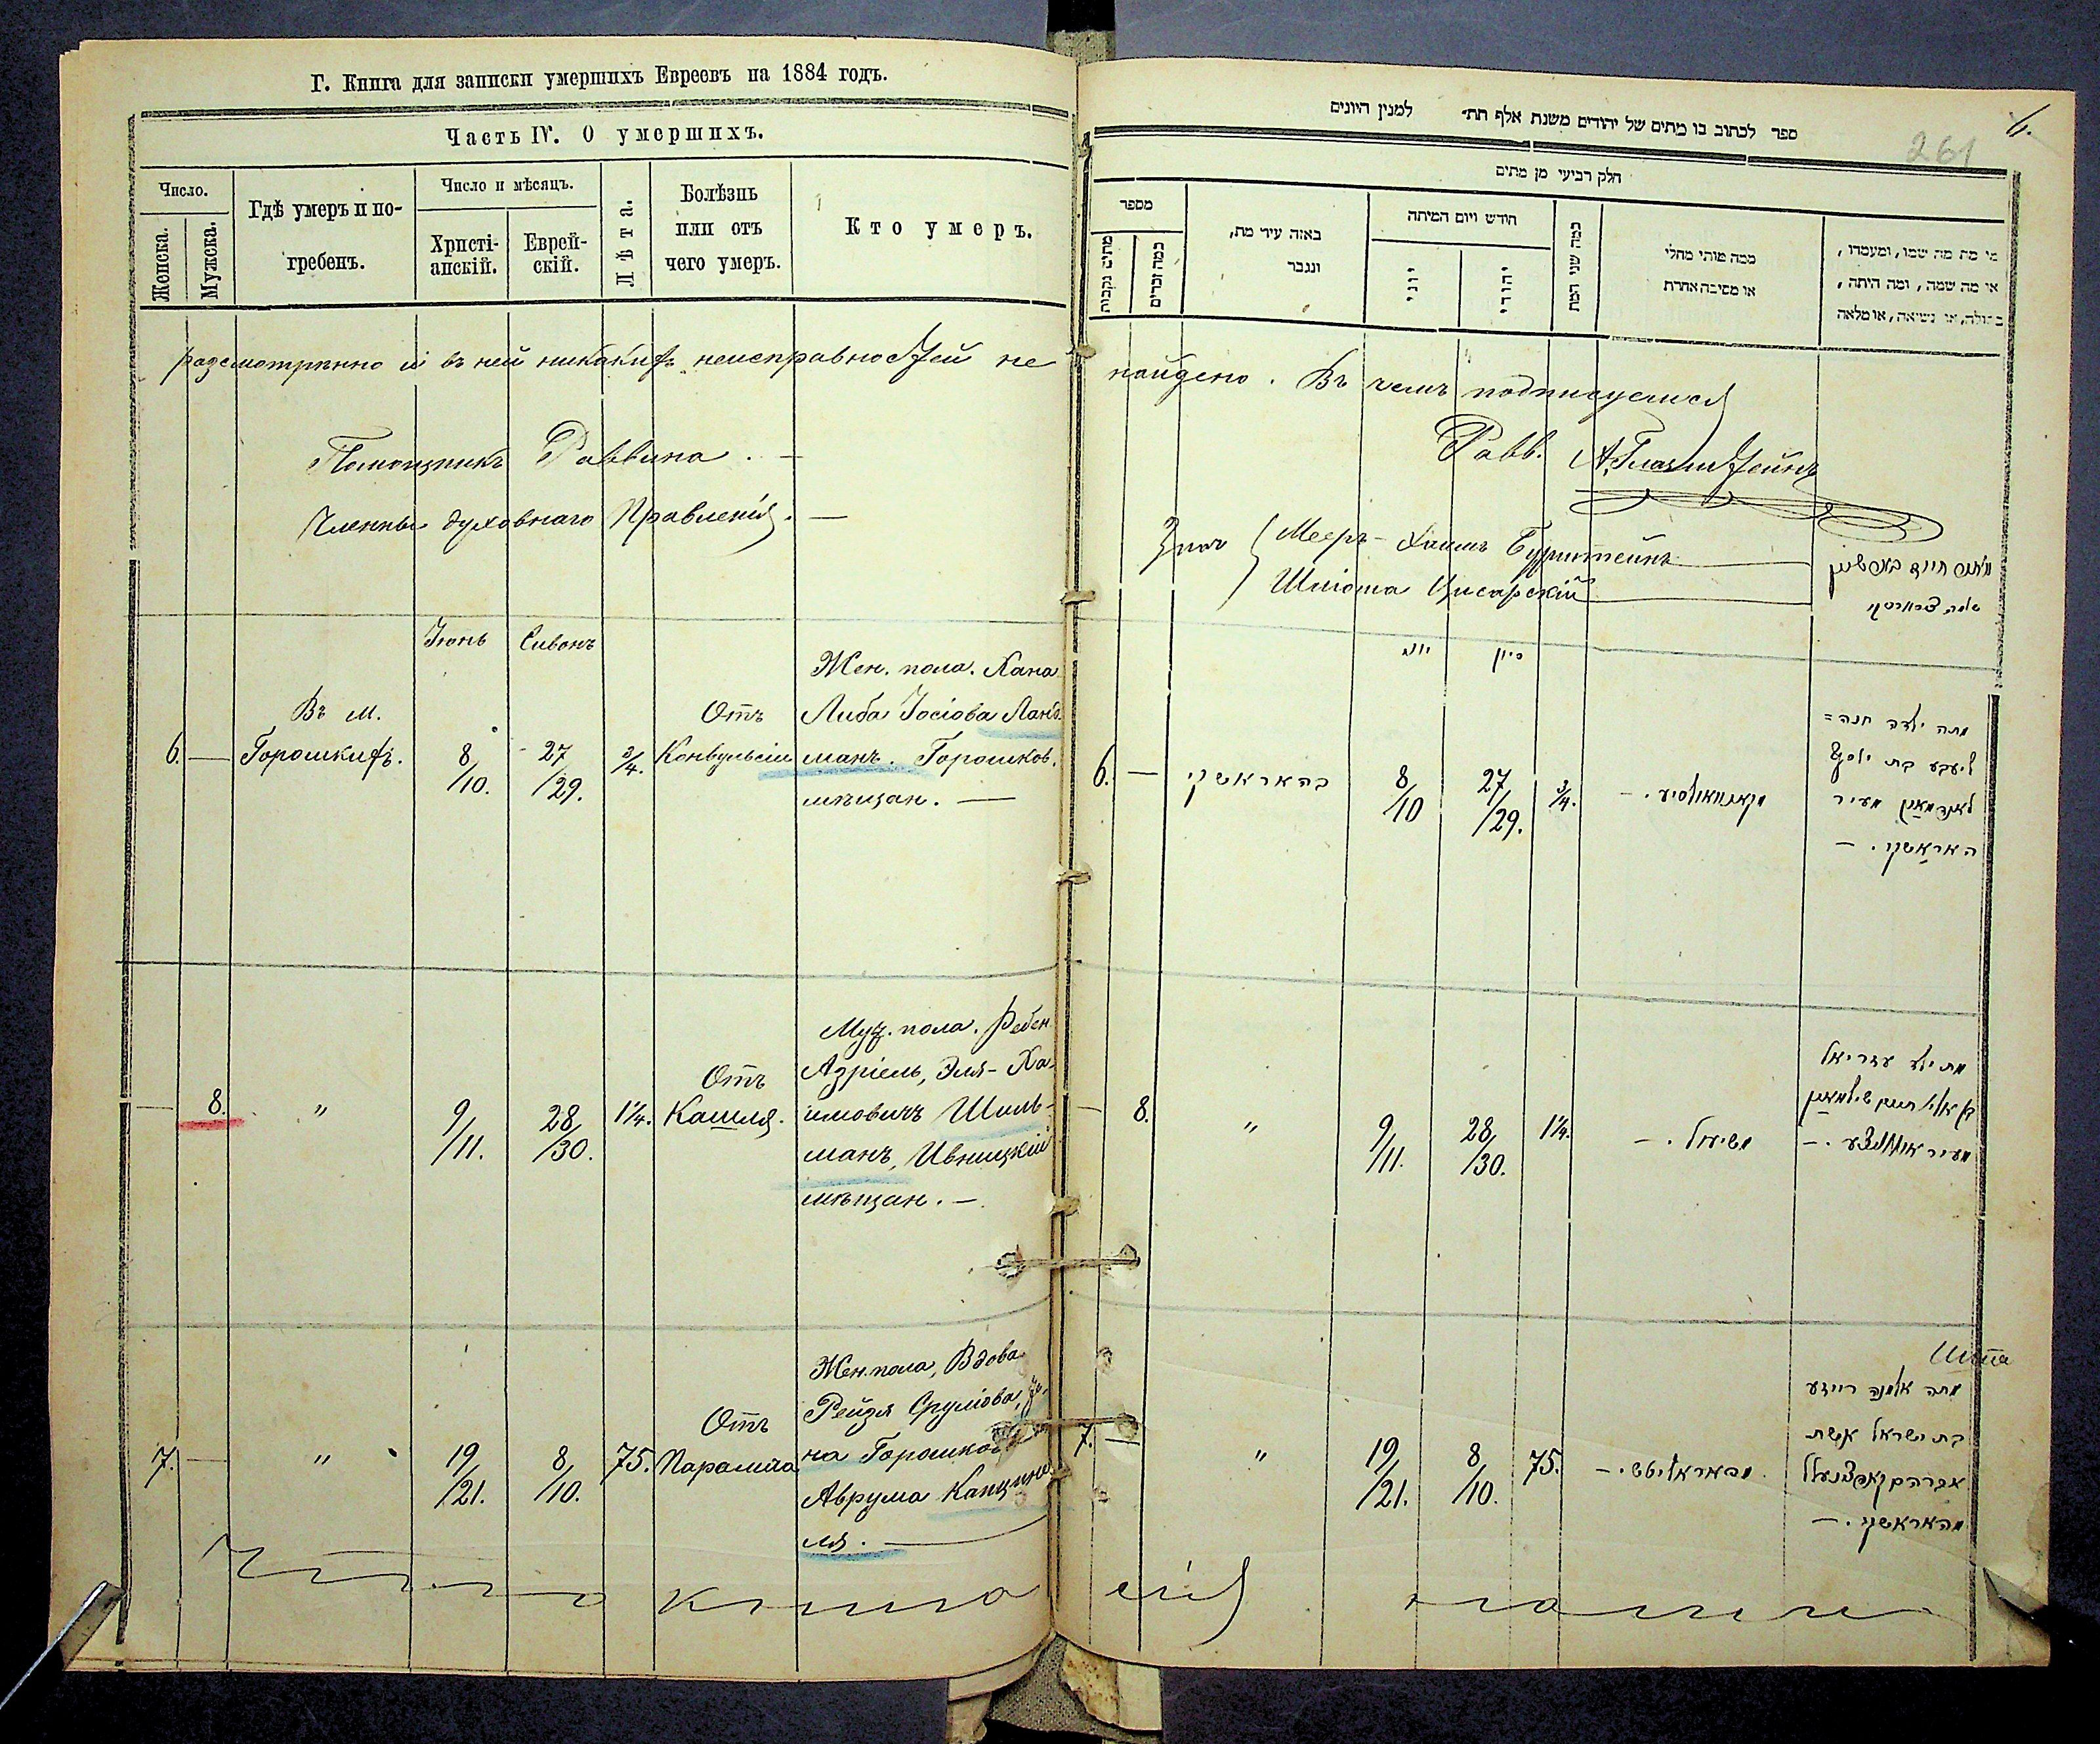 Г. Книга для записки умершихъ Евреевъ на 1884 годъ.
Часть IV. О умершихъ.
Число.
Женска.
Мужска.
Гдѣ умеръ и по-
гребенъ.
Число и мѣсяцъ.
Христі-
анскій.
Еврей-
скій.
Лѣта.
Болѣзнь
или отъ
чего умеръ.
Кто умеръ.
разсмотрѣнно и въ ней никакихъ неисправностей не
Помощникъ Раввина. —
Члены духовнаго Правленія. —
Іюнь Сивонъ
6. —
Въ м.
Горошкахъ.
8/10.
27/29.
3/4.
Отъ
Конвульсіи
Жен. пола. Хана
Либа Іосіова Ланд-
манъ. Горошков.
мѣщан. —
— 8.
"
9/11.
28/30.
1 1/4.
Отъ
Кашля.
Муж. пола. Ребен.
Азріель, Эля-Ха-
имовичъ Шиль-
манъ, Ивницкій
мѣщан. —
7. —
"
19/21.
8/10.
75.
Отъ
Паралича
Жен. пола, Вдова
Рейзя Сруліова, Же-
на
Аврума Капцине-
ля. —
книга
ספר לכתוב בו מתים של יהודים משנת אלף תת״ למנין היונים
6.
261
חלק רביעי מן מתים
מספר
מתים נקבות
כמה זכרים
באזה עיר מת,
ונגבר
חודש ויום המיתה
יוני
יהודי
כמה שני המת
ממה מותי מחלי
או מסיבה אחרת
מי מת מה שמו, ומעמדו,
או מה שמה, ומה היתה,
בתולה, או נשיאה, או מלאה
найдено. Въ чемъ подписуемися
Равв. А. Глазштейнъ
Мееръ-Хаимъ Бурштейнъ
Шліома Цисарскій
יוני סיון
6. —
בהאראשקי
8/10
27/29.
3/4.
מתה ילדה חנה =
ליבע בת יוסף
לאנדמאן מעיר
האראשקי. —
— 8.
"
9/11.
28/30.
1 1/4.
משיעול. —
מת ילד עזריאל
בן אליי חיים שילמאן
7. —
"
19/21.
8/10.
75.
מפאראליטש. —
מתה אלמנה רייזע
בת ישראל אשת
אברהם קאפצינעל
מהאראשקי. —